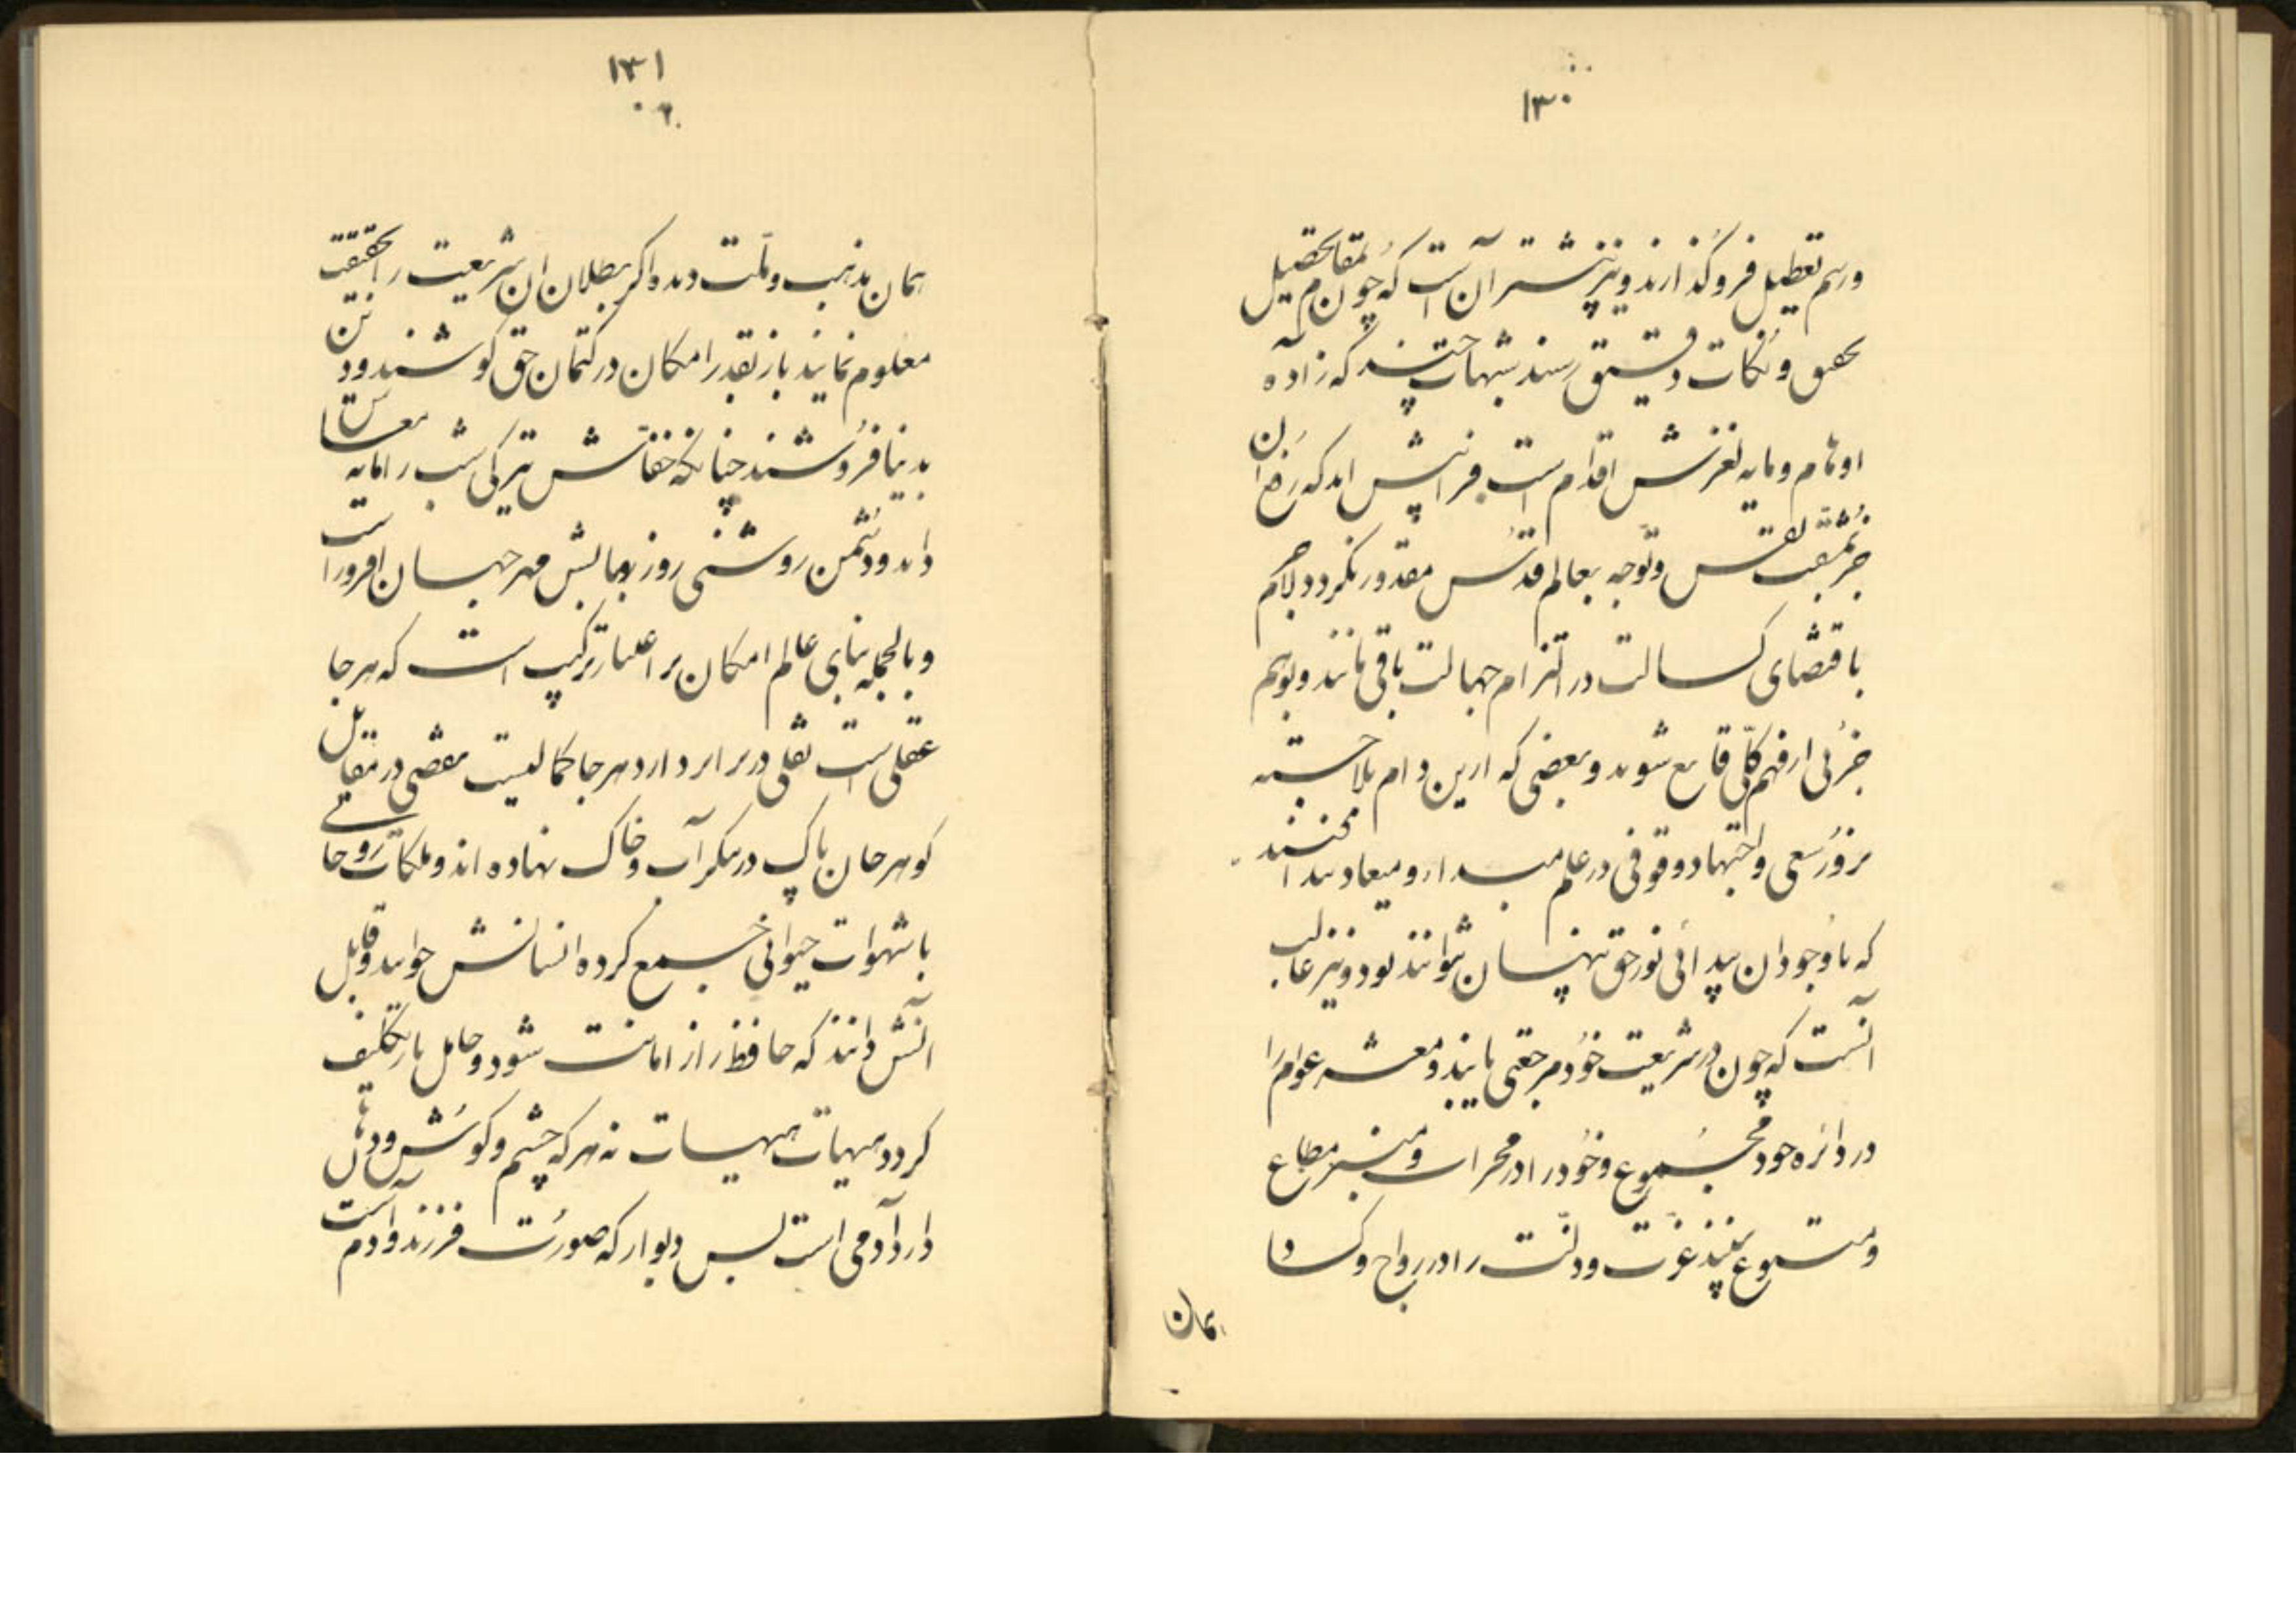 ۱۳۰
ورسم تعطیل فرو گذارند و نیز بیشتر آن است که چون بمقام تحصیل
تحقیق و نکات دقیق رسند شبهات چند که زاده
اوهام و مایه لغزش اقدام است فرا پیش اید که رفع ان
جز بمشقت نفس و توجه بعالم قدس مقدور نکردد لاجرم
باقتضای کسالت در التزام جهالت باقی مانند و بوهم
جزئی از فهم کلی قانع شوند و بعضی که ازین دام بلا جسته
بزور سعی و اجتهاد وقوفی در علم مبداء و میعاد پیدا کنند
که با وجود ان پیدائی نور حق پنهان نتوانند نمود و نیز غالب
آنست که چون در شریعت خود مرجعی یابند و معشر عوام را
در دائره خود مجموع و خود را در محراب و منبر مطاع
و متبوع بینند عزت و دولت را در رواج و کساد
بهمان
۱۳۱
بهمان مذهب و ملت دیده اکر بطلان ان شریعت را بحقیقت
معلوم نمایند باز بقدر امکان در کتمان حق کوشند و دین
بدنیا فروشند چنانکه خفاش تیرکی شب را مایه معاش
داند و دشمن روشنی روز و تابش مهر جهان افروز است
و بالجمله بنای عالم امکان بر اعتبار ترکیب است که هر جا
عقلی است نقلی در برابر دارد هر جا کمالیست نقصی در مقابل
کوهر جان پاک در پیکر آب و خاک نهاده اند و ملکات روحانی
با شهوات حیوانی جمع کرده انسانش خوانند و قابل
آنش دانند که حافظ راز امانت شود و حامل بار تکلیف
کردد هیهات هیهات نه هر که چشم و کوش و دهان
دارد آدمی است بس دیوار که صورت فرزند آدم است